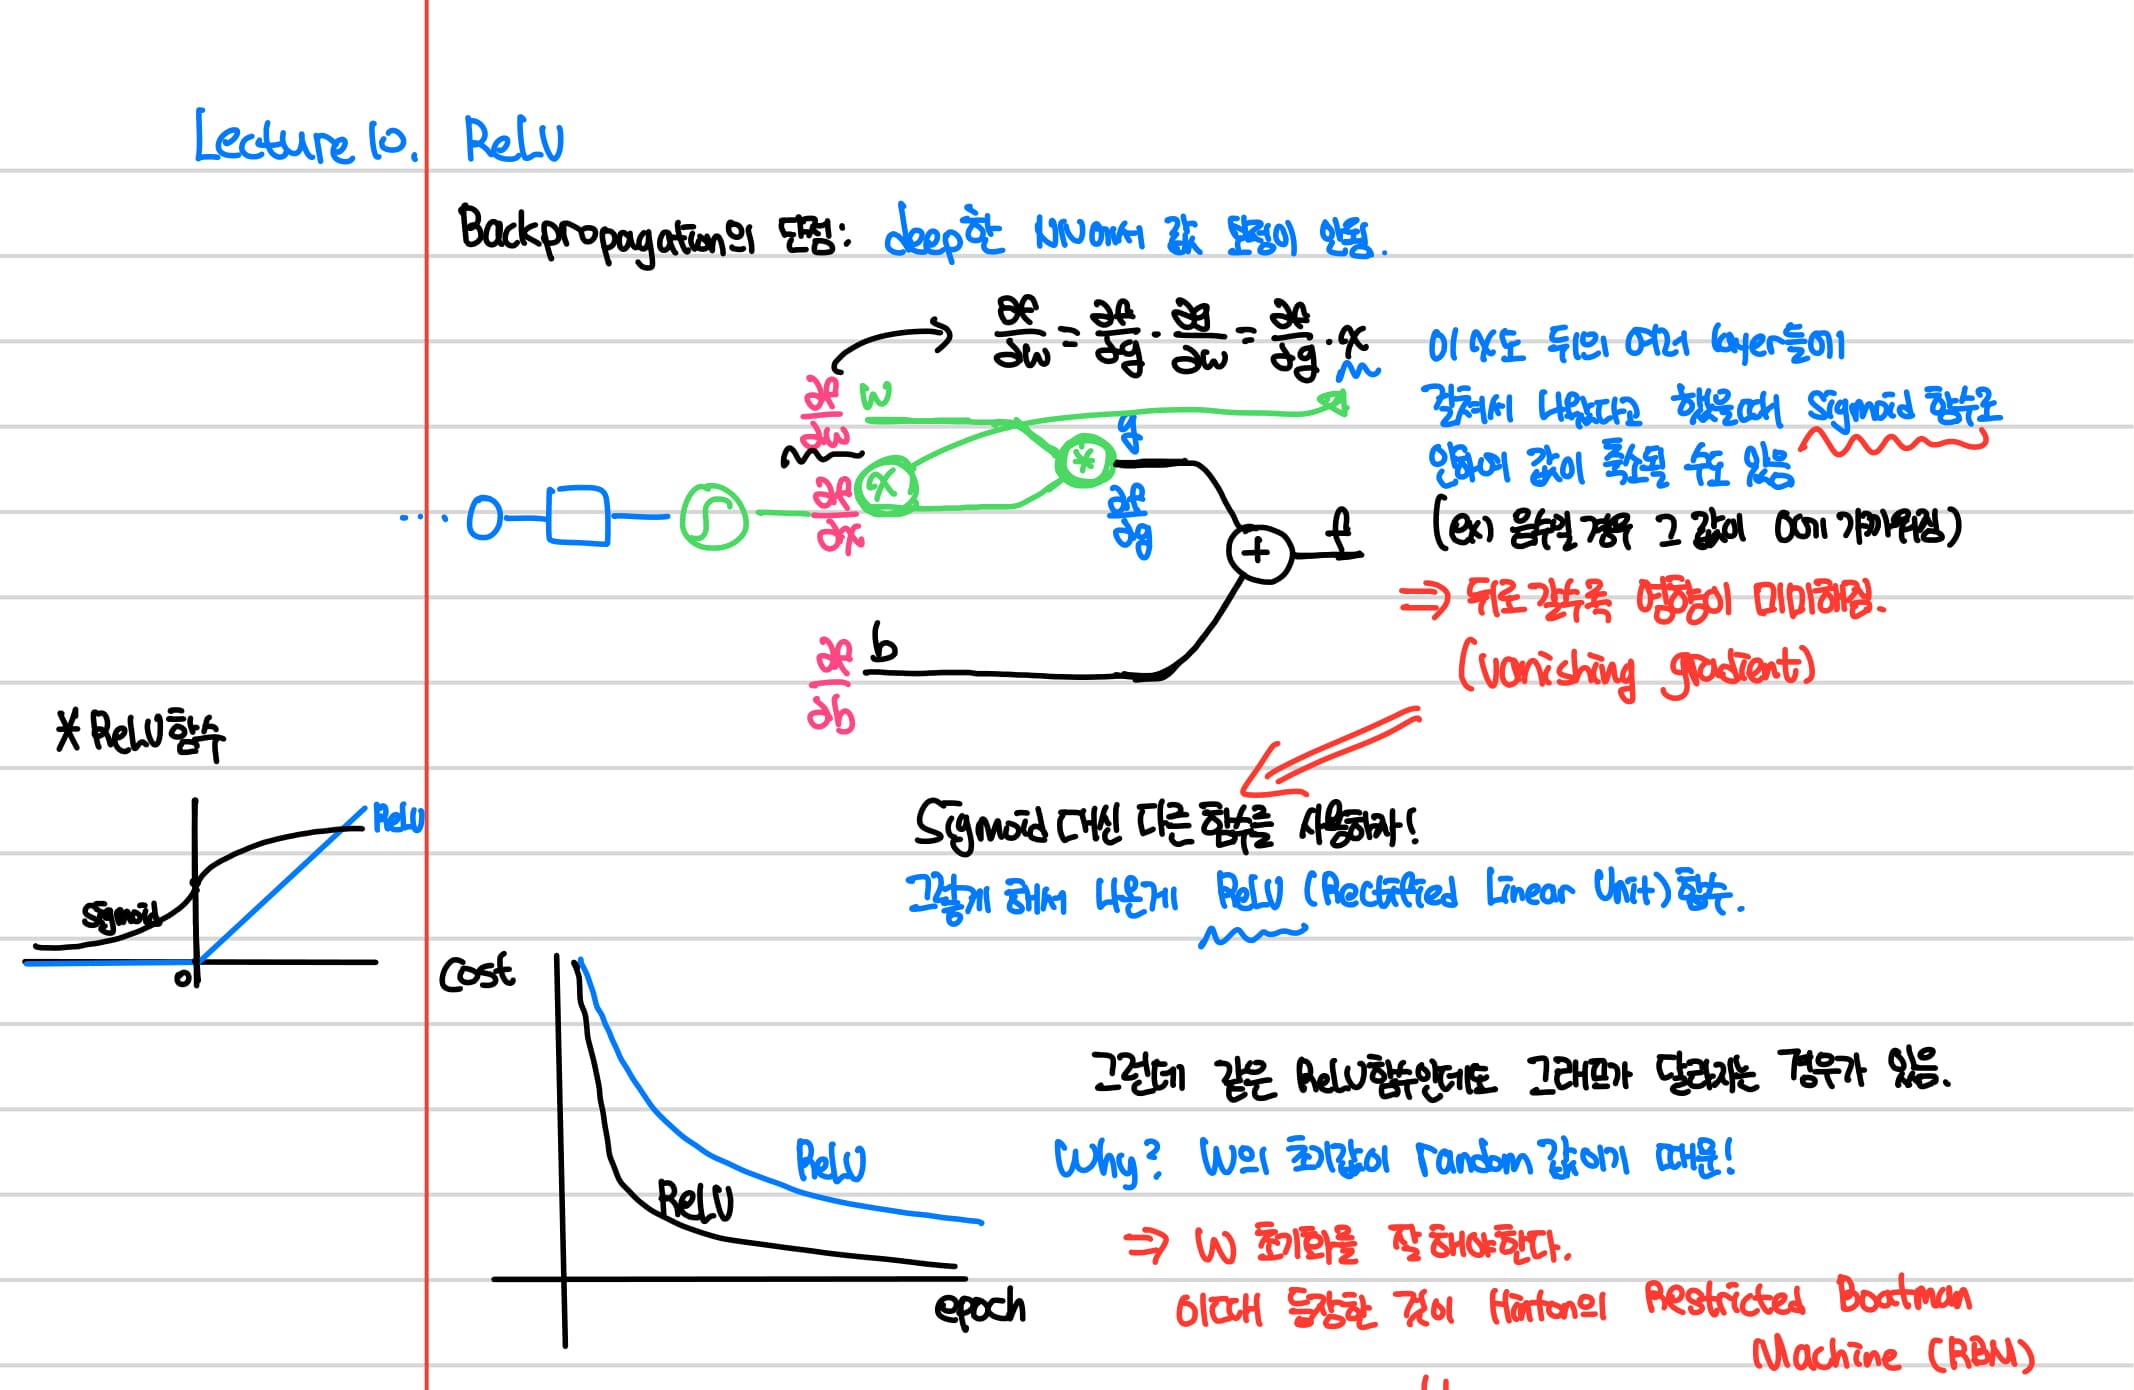 Lecture 10. ReLU
Backpropagation의 단점: deep한 NN에서 값 보정이 안됨.
∂f/∂w = ∂f/∂g · ∂g/∂w = ∂f/∂g · x
이 x도 뒤의 여러 layer들에
걸쳐서 나왔다고 했을때 Sigmoid 함수로
인하여 값이 축소될 수도 있음
(ex) 음수일 경우 그 값이 0에 가까워짐)
⇒ 뒤로갈수록 영향이 미미해짐.
(Vanishing gradient)
∂f/∂w
w
g
*
x
∂f/∂x
∂f/∂g
...
+
f
∂f/∂b
b
* ReLU 함수
ReLU
Sigmoid
0
Sigmoid 대신 다른 함수를 사용하자!
그렇게 해서 나온게 ReLU (Rectified Linear Unit) 함수.
Cost
ReLU
ReLU
epoch
그런데 같은 ReLU함수인데도 그래프가 달라지는 경우가 있음.
Why? W의 초기값이 random값이기 때문!
⇒ W 초기화를 잘 해야한다.
이때 등장한 것이 Hinton의 Restricted Boatman
Machine (RBM)